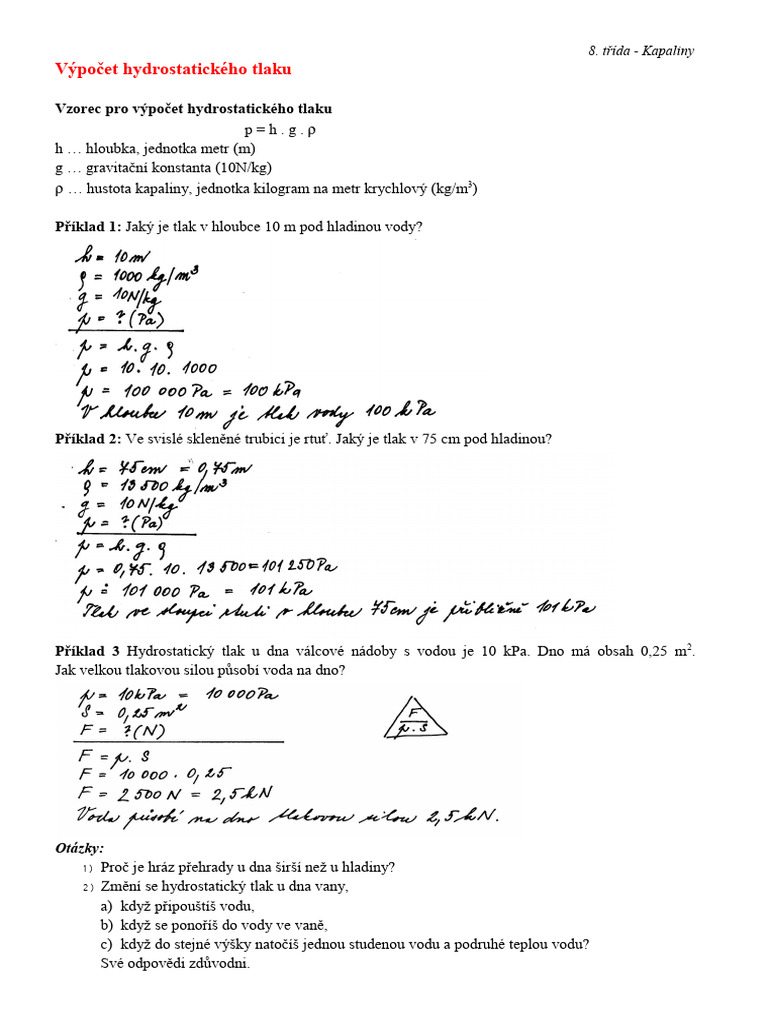 8. třída - Kapaliny
Výpočet hydrostatického tlaku
Vzorec pro výpočet hydrostatického tlaku
p = h . g . ρ
h … hloubka, jednotka metr (m)
g … gravitační konstanta (10N/kg)
ρ … hustota kapaliny, jednotka kilogram na metr krychlový (kg/m³)
Příklad 1: Jaký je tlak v hloubce 10 m pod hladinou vody?
h = 10 m
ρ = 1000 kg/m³
g = 10N/kg
p = ? (Pa)
p = h. g. ρ
p = 10. 10. 1000
p = 100 000 Pa = 100 kPa
V hloubce 10 m je tlak vody 100 kPa
Příklad 2: Ve svislé skleněné trubici je rtuť. Jaký je tlak v 75 cm pod hladinou?
h = 75 cm = 0,75 m
ρ = 13 500 kg/m³
g = 10 N/kg
p = ? (Pa)
p = h. g. ρ
p = 0,75. 10. 13 500 = 101 250 Pa
p ≐ 101 000 Pa = 101 kPa
Tlak ve sloupci rtuti v hloubce 75 cm je přibližně 101 kPa
Příklad 3 Hydrostatický tlak u dna válcové nádoby s vodou je 10 kPa. Dno má obsah 0,25 m².
Jak velkou tlakovou silou působí voda na dno?
p = 10 kPa = 10 000 Pa
S = 0,25 m²
F = ? (N)
F
p . S
F = p. S
F = 10 000 . 0,25
F = 2 500 N = 2,5 kN
Voda působí na dno tlakovou silou 2,5 kN.
Otázky:
1) Proč je hráz přehrady u dna širší než u hladiny?
2) Změní se hydrostatický tlak u dna vany,
a) když připouštíš vodu,
b) když se ponoříš do vody ve vaně,
c) když do stejné výšky natočíš jednou studenou vodu a podruhé teplou vodu?
Své odpovědi zdůvodni.